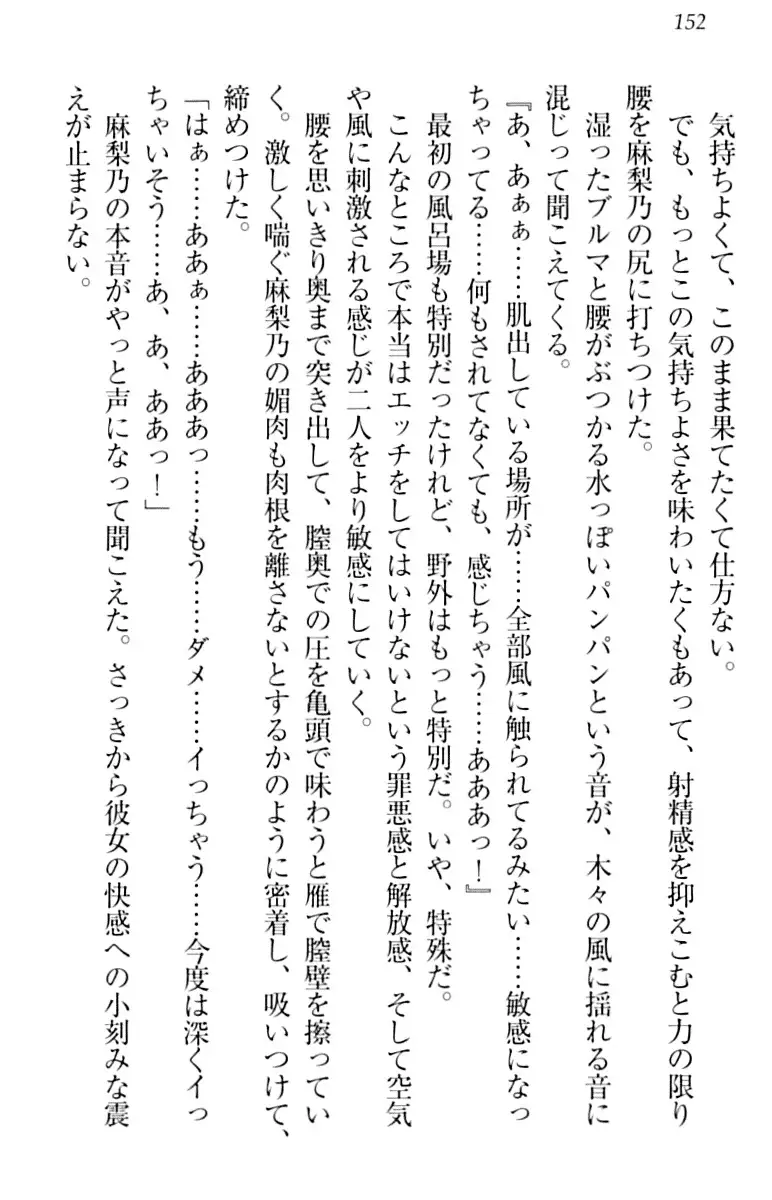 152
気持ちよくて、このまま果てたくて仕方ない。
でも、もっとこの気持ちよさを味わいたくもあって、射精感を抑えこむと力の限り
腰を麻梨乃の尻に打ちつけた。
湿ったブルマと腰がぶつかる水っぽいパンパンという音が、木々の風に揺れる音に
混じって聞こえてくる。
『あ、あぁぁ……肌出している場所が……全部風に触られてるみたい……敏感になっ
ちゃってる……何もされてなくても、感じちゃう……あああっ！』
最初の風呂場も特別だったけれど、野外はもっと特別だ。いや、特殊だ。
こんなところで本当はエッチをしてはいけないという罪悪感と解放感、そして空気
や風に刺激される感じが二人をより敏感にしていく。
腰を思いきり奥まで突き出して、膣奥での圧を亀頭で味わうと雁で膣壁を擦ってい
く。激しく喘ぐ麻梨乃の媚肉も肉根を離さないとするかのように密着し、吸いつけて、
締めつけた。
「はぁ……ああぁ……あああっ……もう……ダメ……イっちゃう……今度は深くイっ
ちゃいそう……あ、あ、ああっ！」
麻梨乃の本音がやっと声になって聞こえた。さっきから彼女の快感への小刻みな震
えが止まらない。